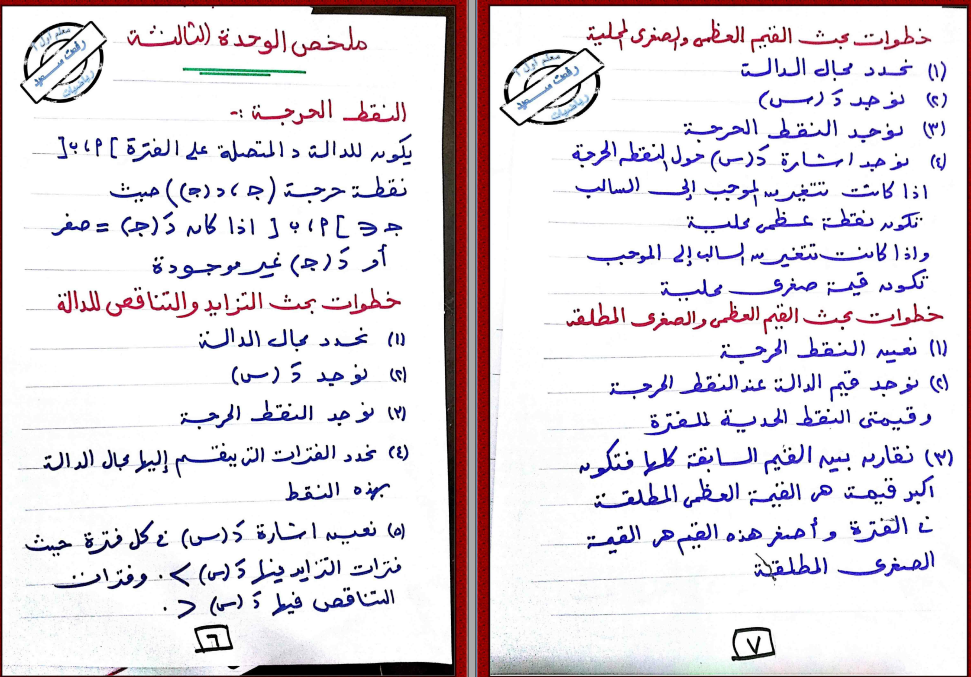 ملخص الوحدة الثالثة
معلم أول أ
رفعت سعيد
رياضيات
النقط الحرجة :-
يكون للدالة د المتصلة على الفترة ]أ ، ب[
نقطة حرجة (جـ ، د (جـ)) حيث
جـ ∈ ]أ ، ب[ اذا كان دَ (جـ) = صفر
أو دَ (جـ) غير موجودة
خطوات بحث التزايد والتناقص للدالة
(١) نحدد مجال الدالة
(٢) نوجد دَ (س)
(٣) نوجد النقط الحرجة
(٤) نحدد الفترات التى ينقسم إليها مجال الدالة
بهذه النقط
(٥) نعين اشارة دَ (س) فى كل فترة حيث
فترات التزايد فيها دَ (س) > ٠ وفترات
التناقص فيها دَ (س) < ٠
٦
خطوات بحث القيم العظمى والصغرى المحلية
معلم أول أ
رفعت سعيد
رياضيات
(١) نحدد مجال الدالة
(٢) نوجد دَ (س)
(٣) نوجد النقط الحرجة
(٤) نوجد اشارة دَ (س) حول النقطه الحرجة
اذا كانت تتغير من الموجب إلى السالب
تكون نقطة عظمى محلية
واذا كانت تتغير من السالب إلى الموجب
تكون قيمة صغرى محلية
خطوات بحث القيم العظمى والصغرى المطلقه
(١) نعين النقط الحرجة
(٢) نوجد قيم الدالة عند النقط الحرجة
وقيمتى النقط الحدية للفترة
(٣) نقارن بين القيم السابقة كلها فتكون
اكبر قيمة هى القيمة العظمى المطلقة
فى الفترة و أصغر هذه القيم هى القيمة
الصغرى المطلقة
٧